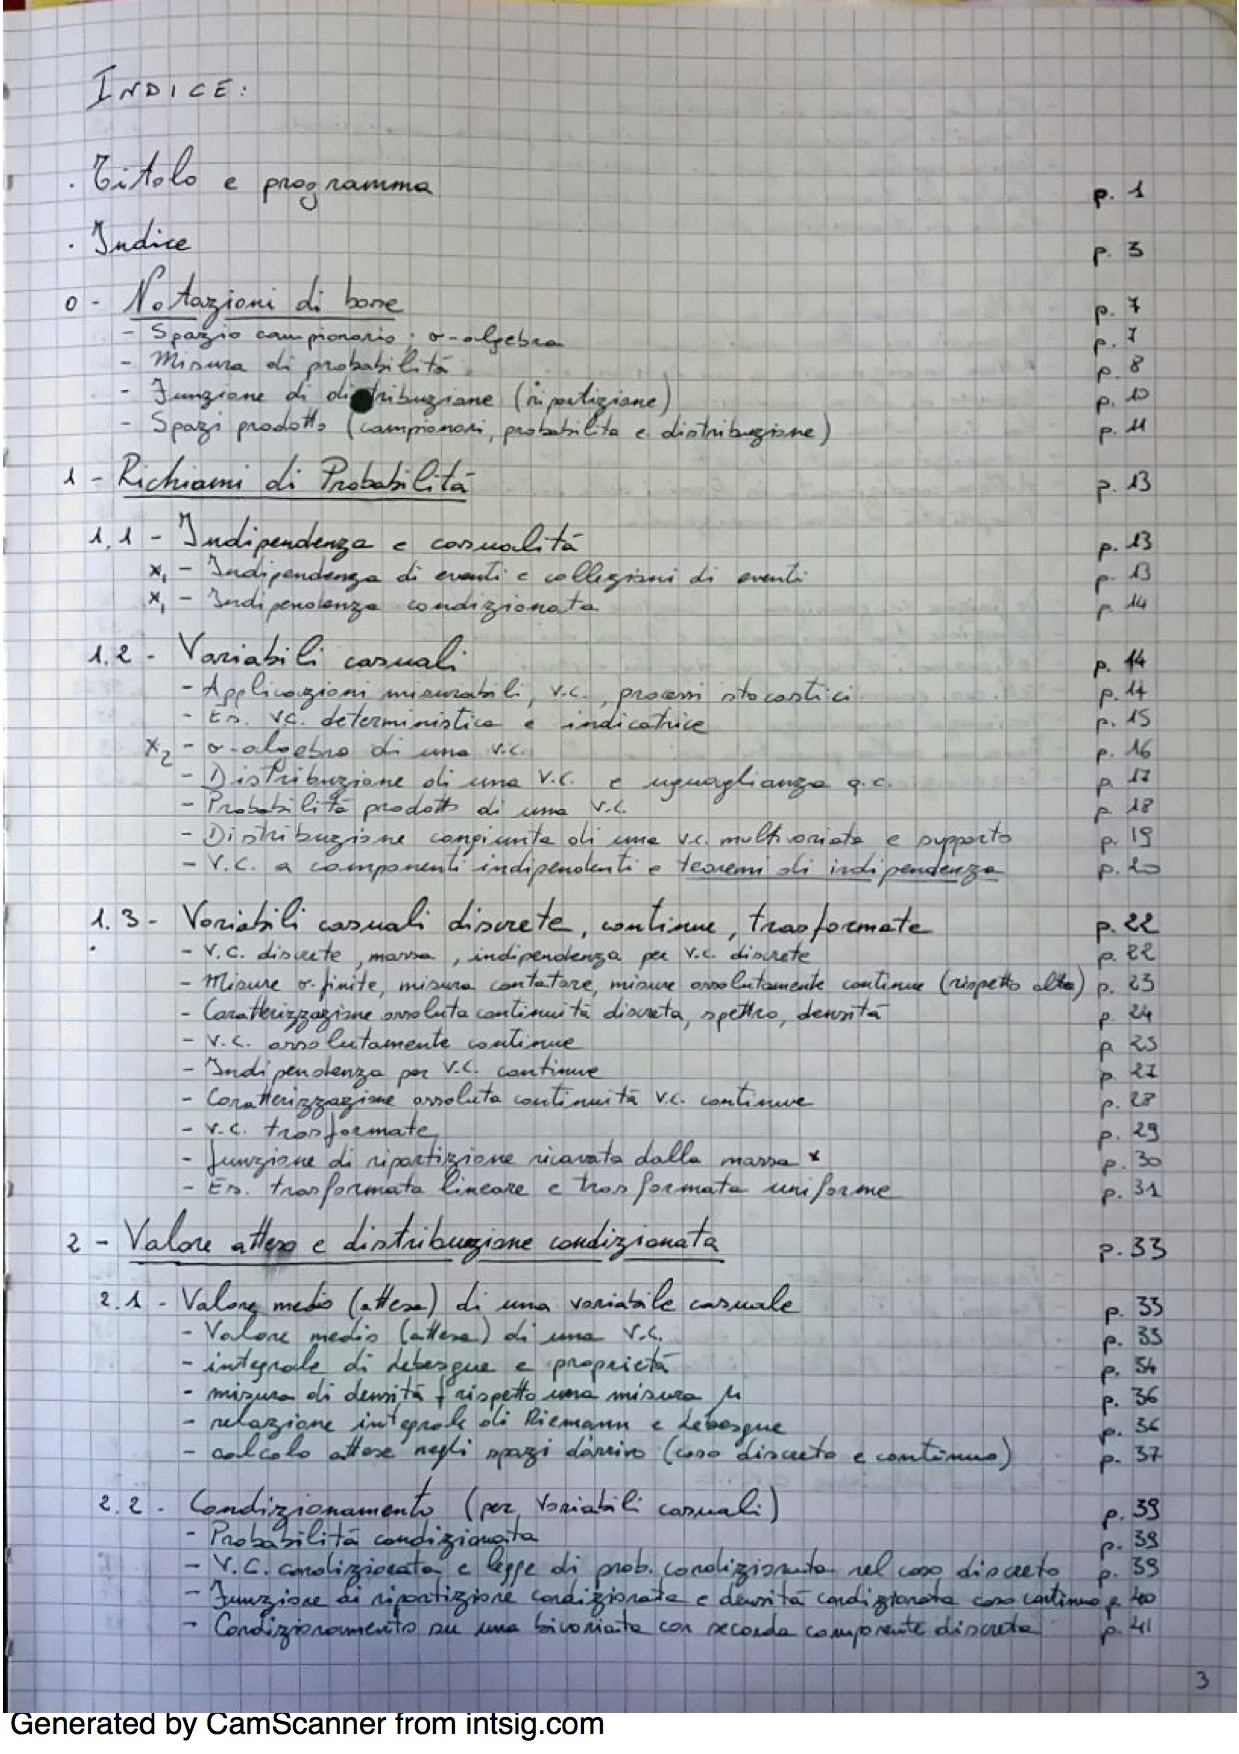 INDICE:
. Titolo e programma p. 1
. Indice p. 3
0 - Notazioni di base p. 7
- Spazio campionario; σ-algebra p. 7
- Misura di probabilità p. 8
- Funzione di distribuzione (ripartizione) p. 10
- Spazi prodotto (campionari, probabilità e distribuzione) p. 11
1 - Richiami di Probabilità p. 13
1.1 - Indipendenza e casualità p. 13
x₁ - Indipendenza di eventi e collezioni di eventi p. 13
x₁ - Indipendenza condizionata p. 14
1.2 - Variabili casuali p. 14
- Applicazioni misurabili, v.c., processi stocastici p. 14
- Es. v.c. deterministica e indicatrice p. 15
x₂ - σ-algebra di una v.c. p. 16
- Distribuzione di una v.c. e uguaglianza q.c. p. 17
- Probabilità prodotto di una v.c. p. 18
- Distribuzione congiunta di una v.c. multivariata e supporto p. 19
- V.C. a componenti indipendenti e teoremi di indipendenza p. 20
1.3 - Variabili casuali discrete, continue, trasformate p. 22
- V.C. discrete, massa, indipendenza per v.c. discrete p. 22
- Misure σ-finite, misura contatore, misure assolutamente continue (rispetto altra) p. 23
- Caratterizzazione assoluta continuità discreta, spettro, densità p. 24
- V.C. assolutamente continue p. 25
- Indipendenza per V.C. continue p. 27
- Caratterizzazione assoluta continuità v.c. continue p. 28
- V.C. trasformate p. 29
- funzione di ripartizione ricavata dalla massa x p. 30
- Es. trasformata lineare e trasformata uniforme p. 31
2 - Valore atteso e distribuzione condizionata p. 33
2.1 - Valore medio (atteso) di una variabile casuale p. 33
- Valore medio (atteso) di una V.C. p. 33
- integrale di Lebesgue e proprietà p. 34
- misura di densità f rispetto una misura μ p. 36
- relazione integrale di Riemann e Lebesgue p. 36
- calcolo attese negli spazi d'arrivo (caso discreto e continuo) p. 37
2.2 - Condizionamento (per variabili casuali) p. 39
- Probabilità condizionata p. 39
- V.C. condizionata e legge di prob. condizionata nel caso discreto p. 39
- Funzione di ripartizione condizionata e densità condizionata caso continuo p. 40
- Condizionamento su una bivariata con seconda componente discreta p. 41
3
Generated by CamScanner from intsig.com